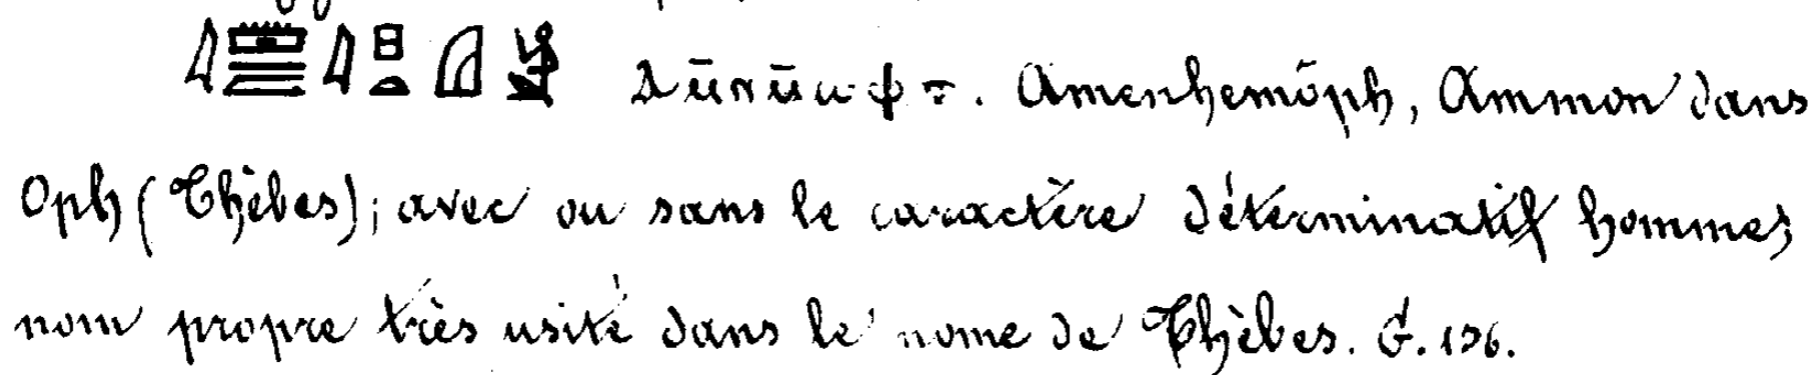 Amenhemôph, Ammon dans
Oph (Thèbes); avec ou sans le caractère déterminatif homme;
nom propre très usité dans le nome de Thèbes. G.